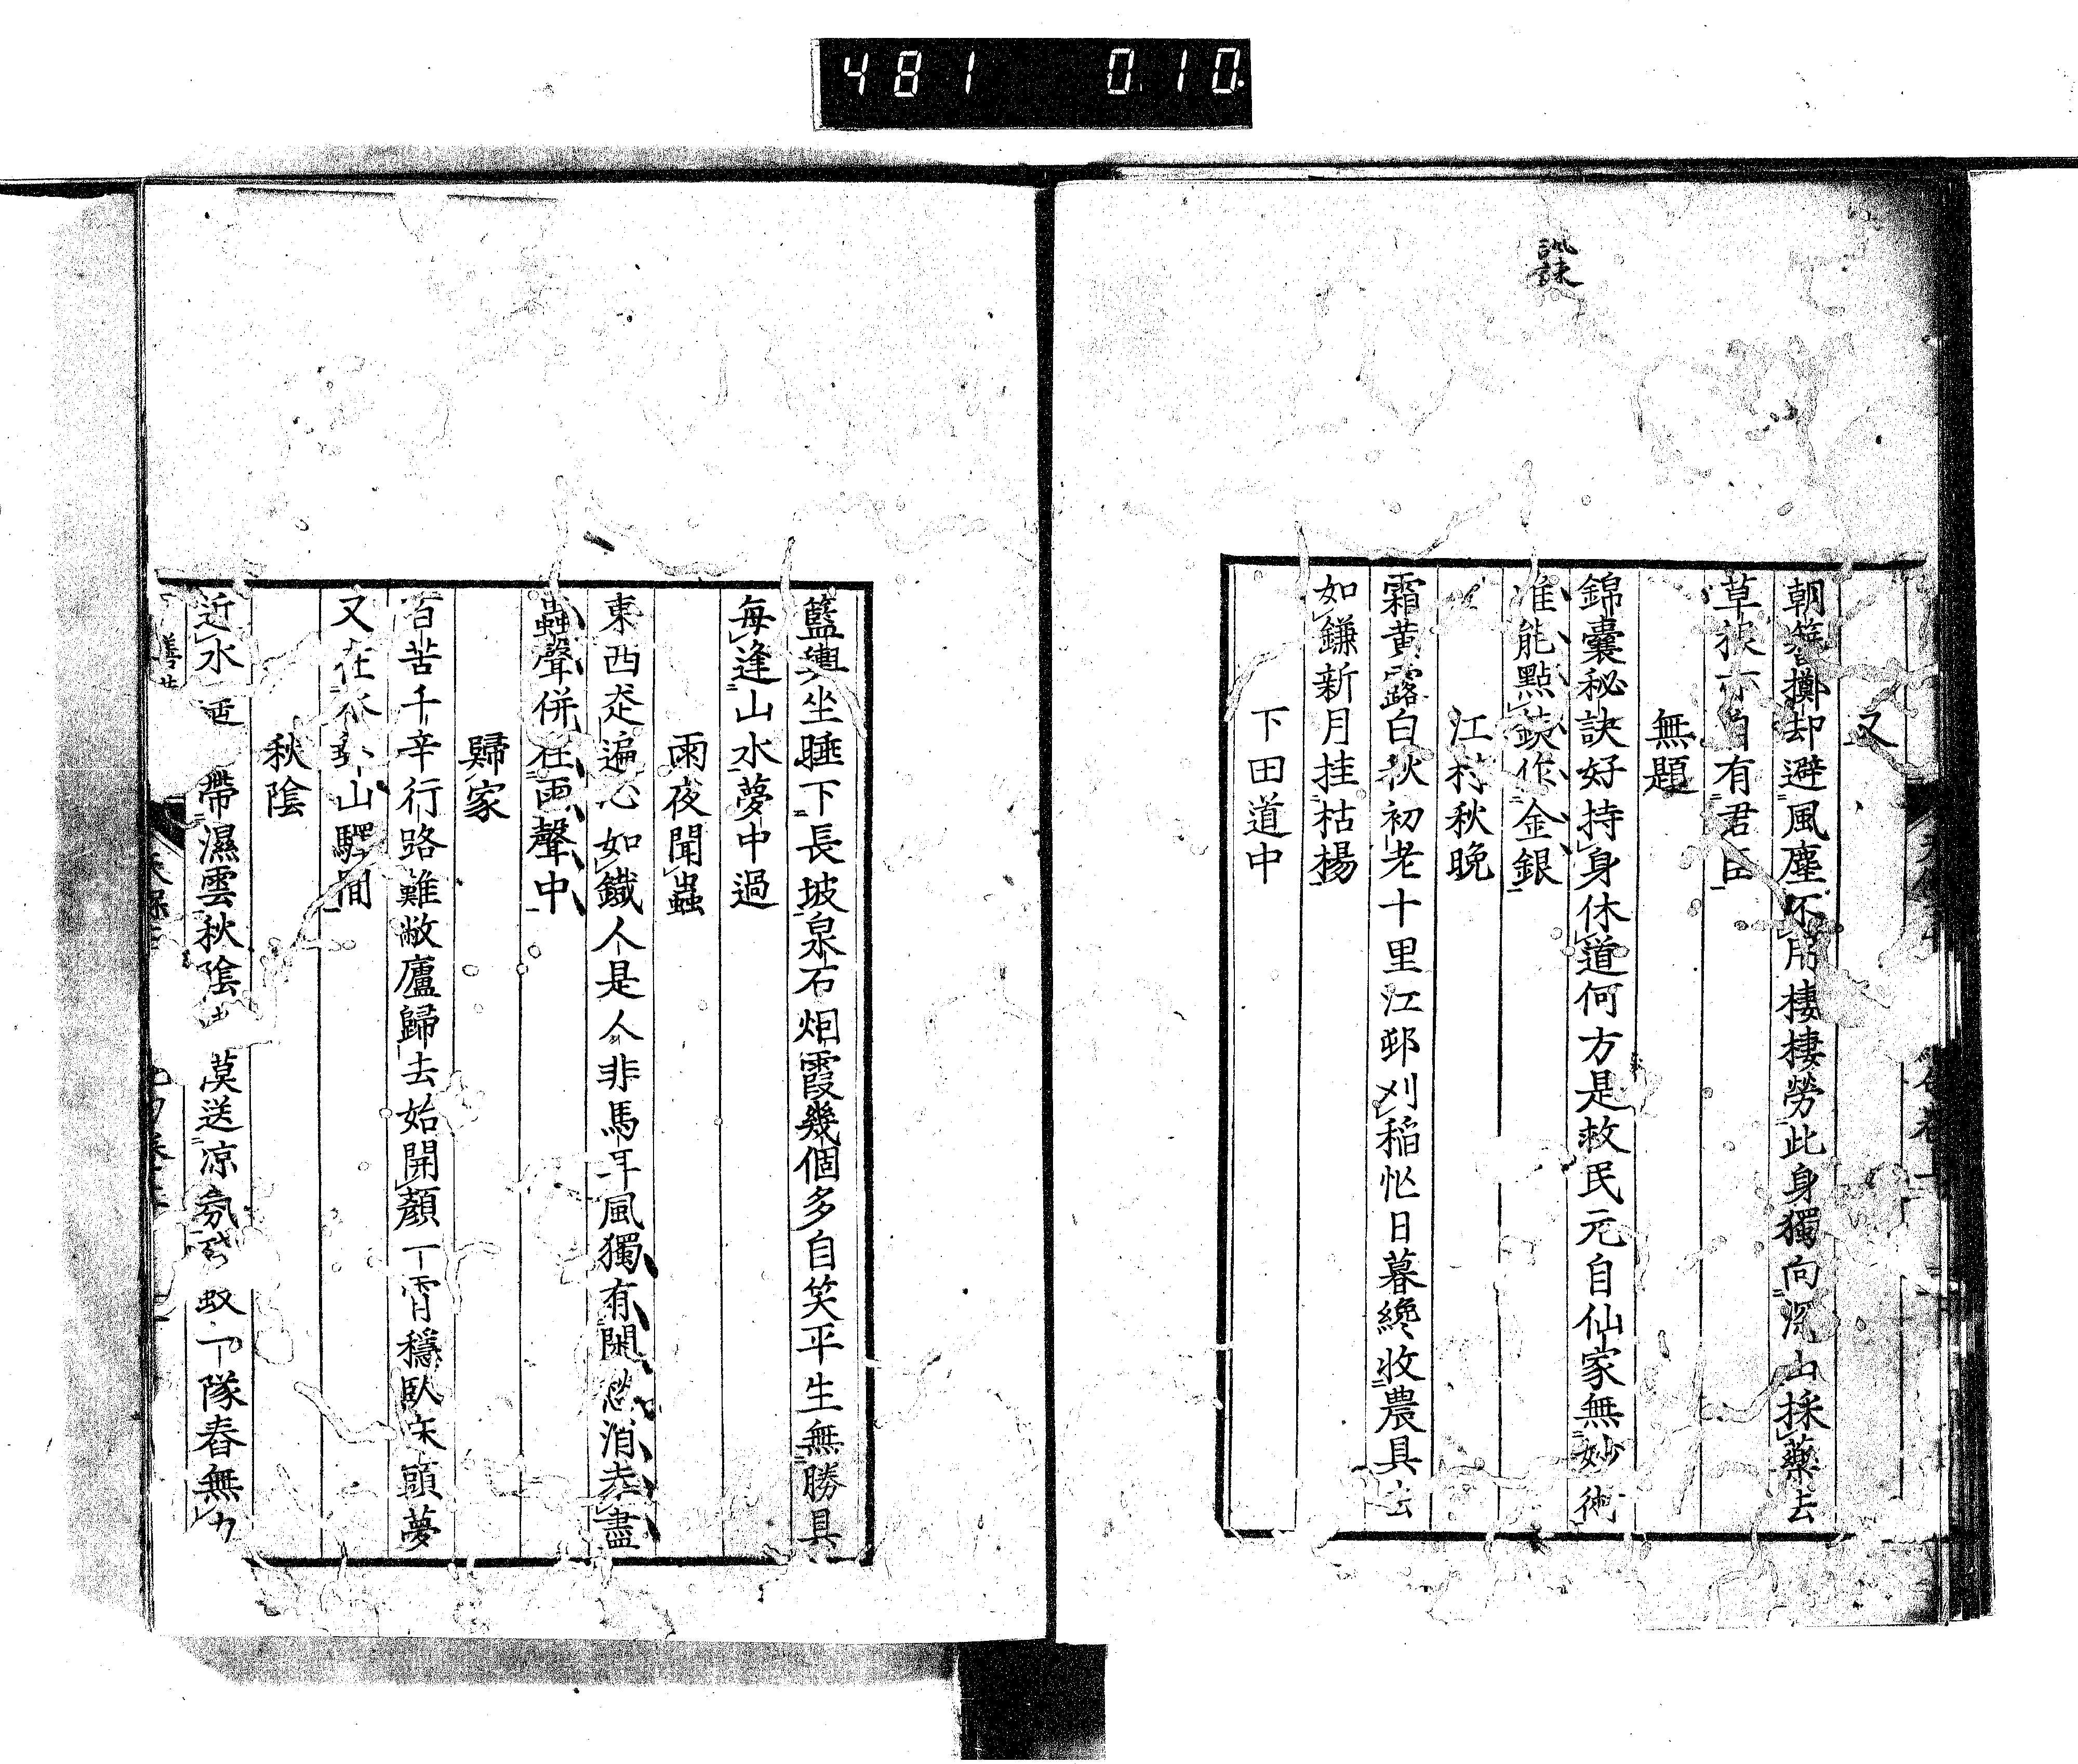 481 0.10.
訛誅
又
朝簪擲却避風塵不用棲棲勞此身獨向深山採藥去
草根亦自有君臣
無題
錦囊秘訣好持身休道何方是救民元自仙家無妙術
唯能點鉄作金銀
江村秋晚
霜黃露白秋初老十里江邨刈稲忙日暮纔收農具去
如鎌新月挂枯楊
下田道中
籃輿坐睡下長坡泉石烟霞幾個多自笑平生無勝具
每逢山水夢中過
雨夜聞蟲
東西走遍心如鐵人是人非馬耳風獨有閑愁消未盡
蟲聲併在雨聲中
歸家
百苦千辛行路難敝廬歸去始開顏一宵穩臥床頭夢
又在水山驛間
秋陰
近水 帶濕雲秋陰 漠送凉氛 蚊一隊春無力